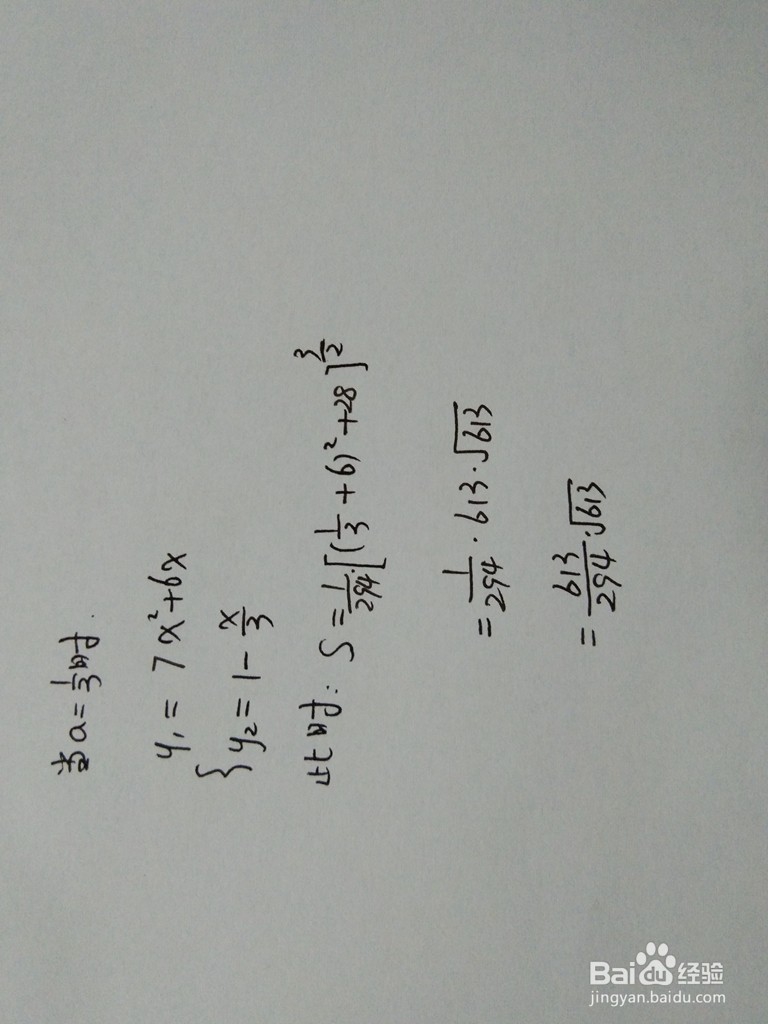 当a=1/3时.
{y₁=7x²+6x
y₂=1-x/3
此时: S=1/294·[(1/3+6)²+28]^(3/2)
=1/294·613·√613
=613/294·√613
Baidu经验
jingyan.baidu.com